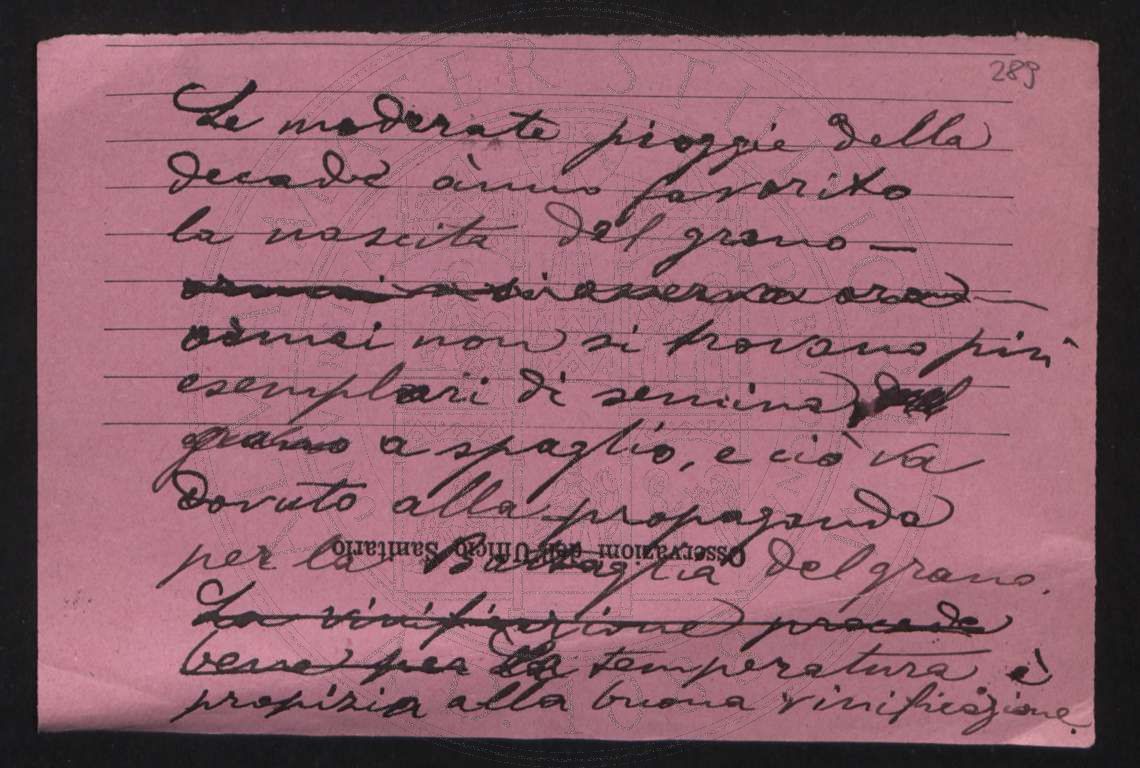 289
Le moderate pioggie della
decade ànno favorito
la nascita del grano —
ormai non si trovano più
esemplari di semina
grano a spaglio, e ciò va
dovuto alla propaganda
Osservazioni dell'Ufficio Sanitario
per la Battaglia del grano.
La vinificazione procede
bene per la temperatura è
propizia alla buona vinificazione.